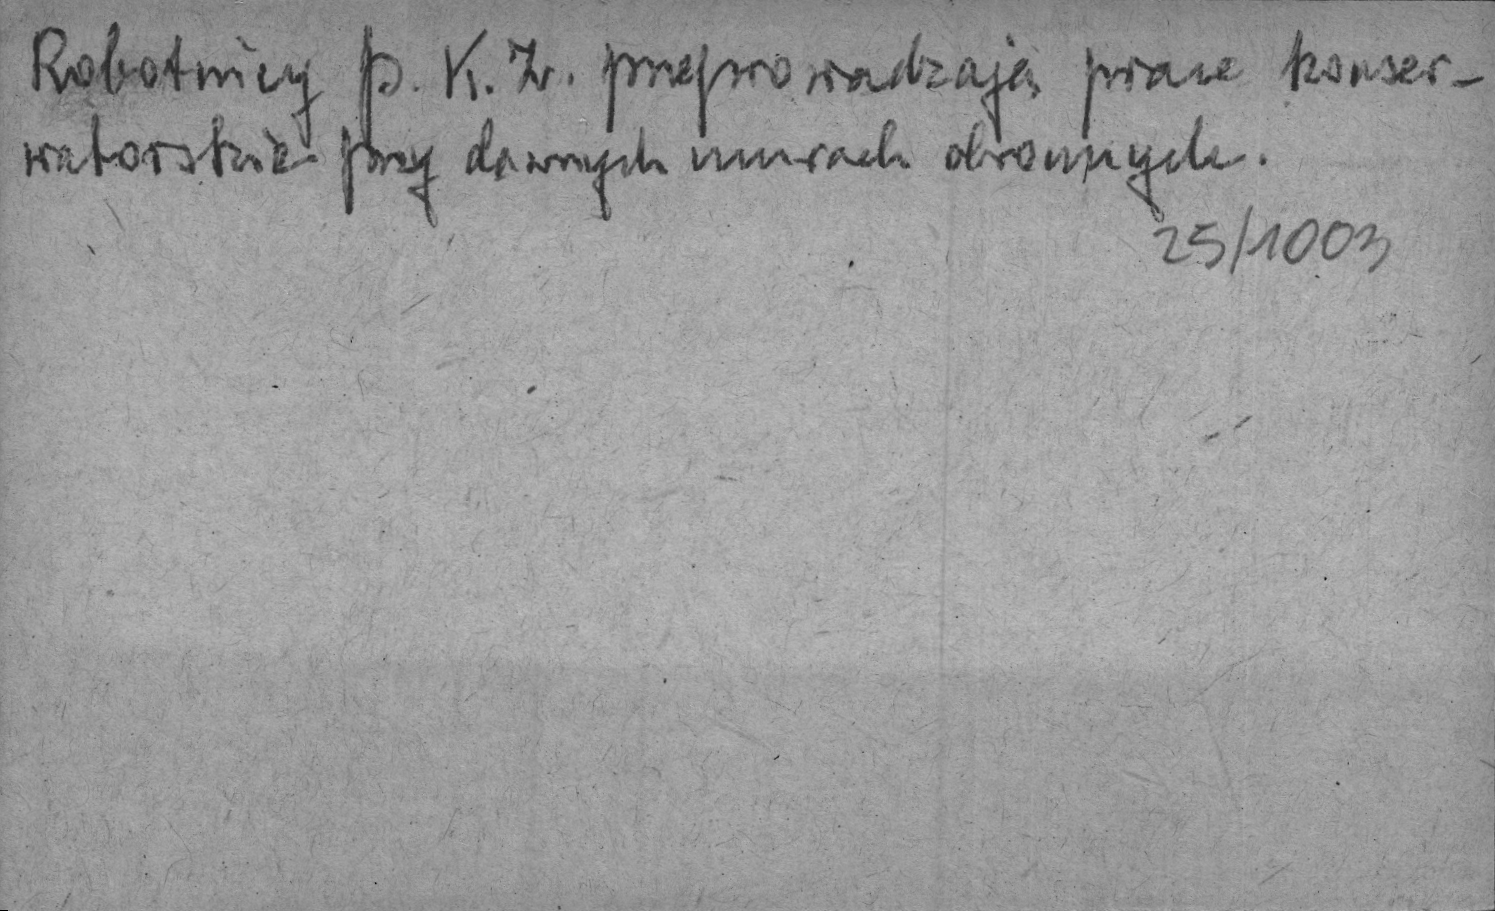 Robotnicy P. K. Z. przeprowadzają prace konser-
watorskie przy dawnych murach obronnych.
25/1003